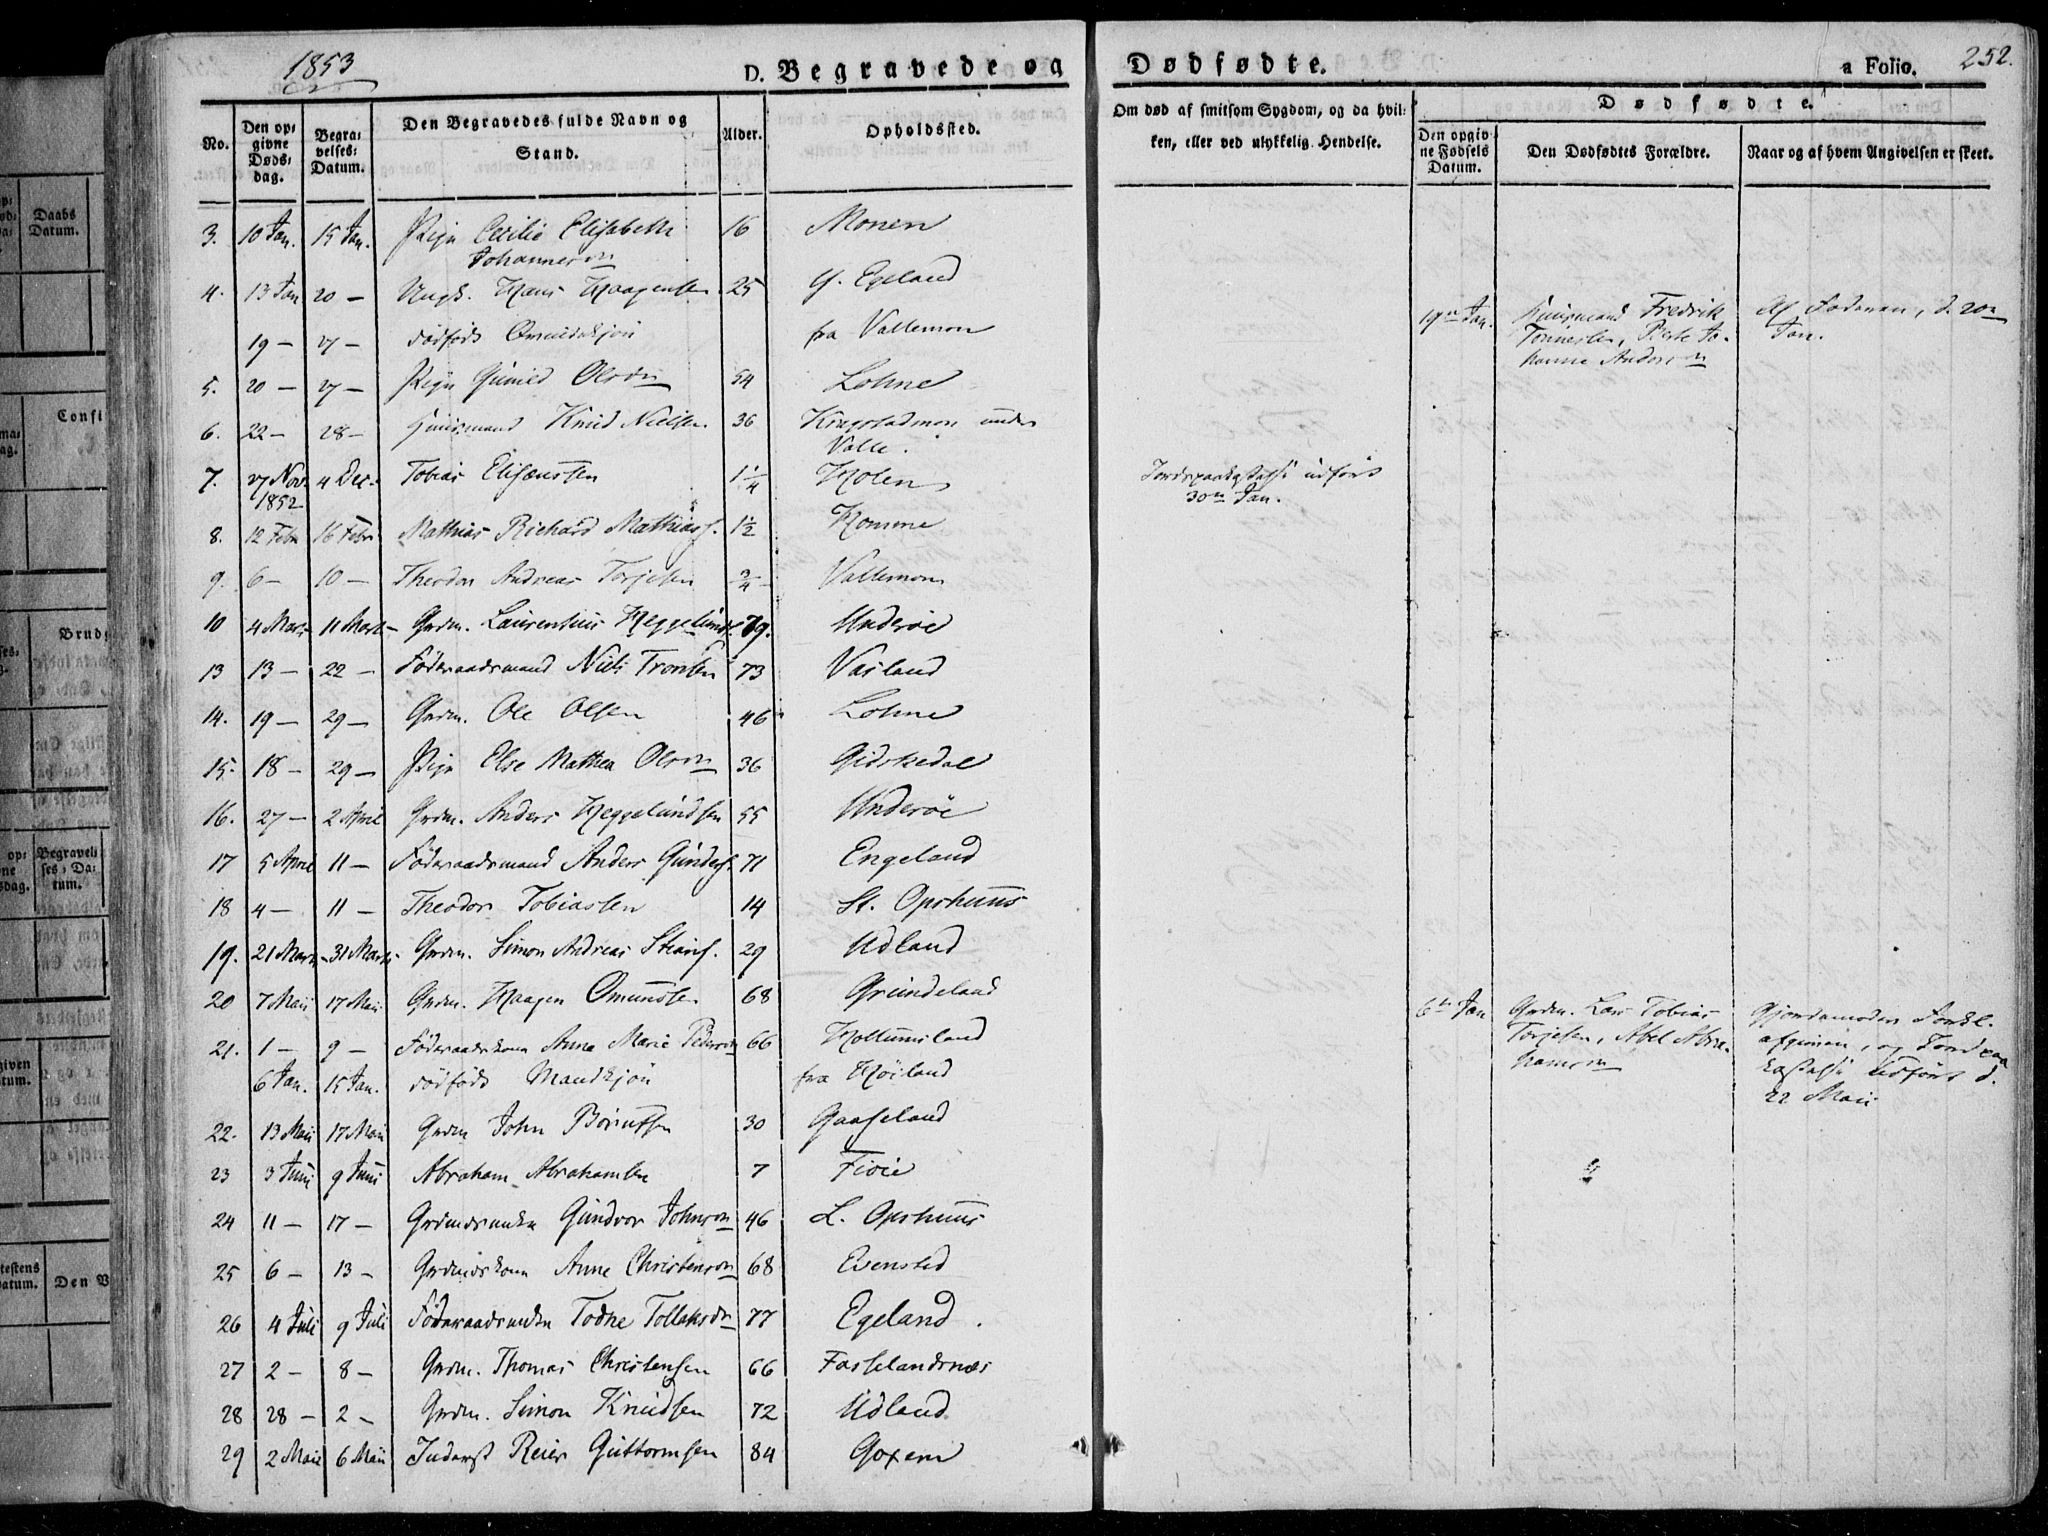 1853
D. Begravede og Dødfødte.
a Folio. 252.
No.
Den op-
givne
Døds-
dag.
Begra-
velses-
Datum.
Den Begravedes fulde Navn og
Stand.
Alder.
Opholdssted.
Om død af smitsom Sygdom, og da hvil-
ken, eller ved ulykkelig Hendelse.
Dødfødte.
Den opgiv-
ne Fødsels
Datum.
Den Dødfødtes Forældre.
Naar og af hvem Angivelsen er skeet.
3. 10 Jan. 15 Jan. Pige Cecilie Elisabeth 16 Monen
Johannesdn
4. 13 Jan 20 — Ungk. Hans Haagensen 25 G. Egeland
19 — 27 — dødfødt Qvindekjøn fra Vallemon
19n Jan. Huusmand Fredrik
Tønnesen, Berte Jo-
hanne Andersdn
Af Faderen, d. 20n
Jan.
5. 20 — 27 — Pige Gunild Olsdn 54 Lohne
6. 22 — 28 — Huusmand Knud Nielsen 36 Kragstadmon under
Valle.
7. 27 Nov. 4 Dec. Tobias Eliseussen 1 1/4 Holen
1852
Jordspaakastelse udført
30n Jan.
8. 12 Febr 16 Febr Mathias Richard Mathiass. 1 1/2 Homme
9. 6 — 10 — Theodor Andreas Torjesen 3/4 Vallemon
10 4 Marts 11 Marts Grdm. Laurentius Heggelunds. 79. Underøe
13 13 — 22 — Føderaadsmand Niels Tronsen 73 Vasland
14. 19 — 29 — Grdm. Ole Olsen 46 Lohne
15. 18 — 29 — Pige Else Mathea Olsdn 36 Gidskedal
16. 27 — 2 April Grdm. Anders Heggelundsen 55 Underøe
17 5 April 11 — Føderaadsmand Anders Gunders. 71 Engeland
18 4 — 11 — Theodor Tobiassen 14 St. Opshuus
19. 21 Marts 31 Marts Grdm. Simon Andreas 29 Udland
20 7 Maii 17 Maii Grdm. Haagen Omundsen 68 Grundeland
21. 1 — 9 — Føderaadskone Anna Marie Pedersdn 66 Hollumsland
6 Jan. 15 Jan. dødfødt Mandkjøn fra Høiland
6te Jan Grdm. Lars Tobias
Torjesen, Abel Abra-
hamsdn
Gjordemoder
og Jordpaa-
kastelse udført d.
22 Maii
22. 13 Maii 17 Maii Grdm John 30 Gaaseland
23 3 Juni 9 Juni Abraham Abrahamsen 7 Fiøie
24 11 — 17 — Grdmdsenke Gundvor Johnsdn 46 L. Opshuus
25 6 — 13 — Grdmdskone Anne Christensdn 68 Evensted
26 4 Juli 9 Juli Føderaadsenke Todne Tollaksdn 77 Egeland.
27 2 — 8 — Grdm. Thomas Christensen 66 Fasselandsnæs
28 28 — 2 — Grdm. Simon Knudsen 72 Udland
29 2 Maii 6 Maii Inderst Reier Guttormsen 84 Goxem